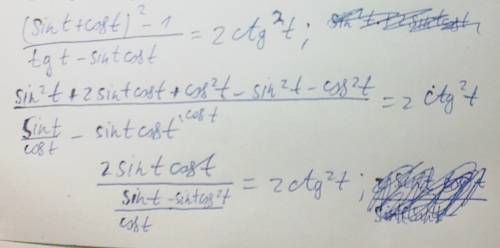 (sint+cost)² - 1 / tgt - sintcost = 2ctg²t;
sin²t + 2sintcost + cos²t - sin²t - cos²t / sint/cost - sintcost \cost = 2ctg²t
2sintcost / (sint - sintcos²t / cost) = 2ctg²t;